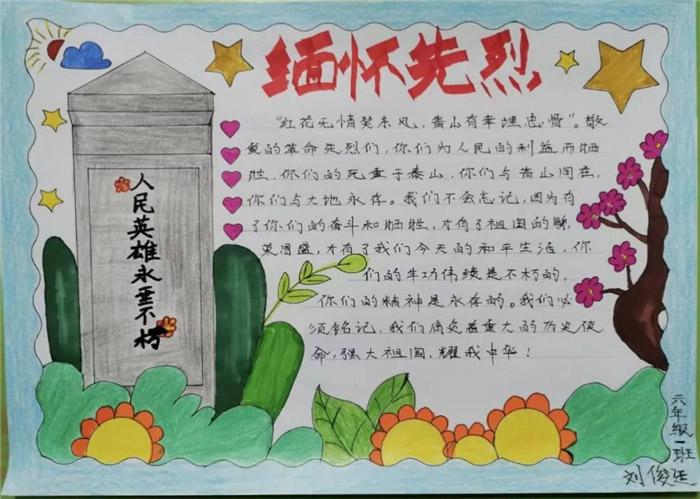 缅怀先烈
"红花无情笑东风,青山有幸埋忠骨"。敬
爱的革命先烈们,你们为人民的利益而牺
牲,你们的死重于泰山,你们与青山同在,
你们与大地永存。我们不会忘记,因为有
了你们的奋斗和牺牲,才有了祖国的繁
荣昌盛,才有了我们今天的和平生活,你
们的丰功伟绩是不朽的,
你们的精神是永存的。我们必
须铭记,我们肩负着重大的历史使
命,强大祖国,耀我中华!
人民英雄永垂不朽
六年级一班
刘俊